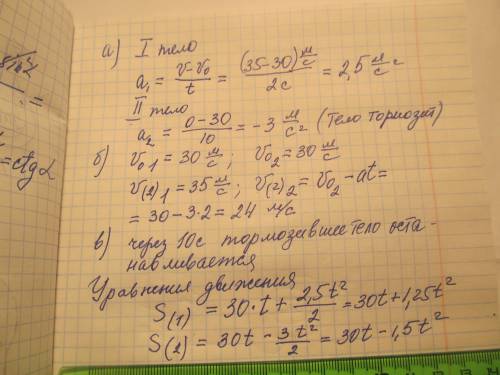 а) I тело
a₁ = (v - v₀)/t = (35-30) м/с / 2с = 2,5 м/с²
II тело
a₂ = (0-30)/10 = -3 м/с² (тело тормозит)
б) v₀₁ = 30 м/с; v₀₂ = 30 м/с
v₍₂₎₁ = 35 м/с; v₍₂₎₂ = v₀₂ - at =
= 30 - 3·2 = 24 м/с
в) через 10с тормозившее тело оста-
навливается
Уравнения движения
S₍₁₎ = 30·t + 2,5t²/2 = 30t + 1,25t²
S₍₂₎ = 30t - 3t²/2 = 30t - 1,5t²
=
= ctg α